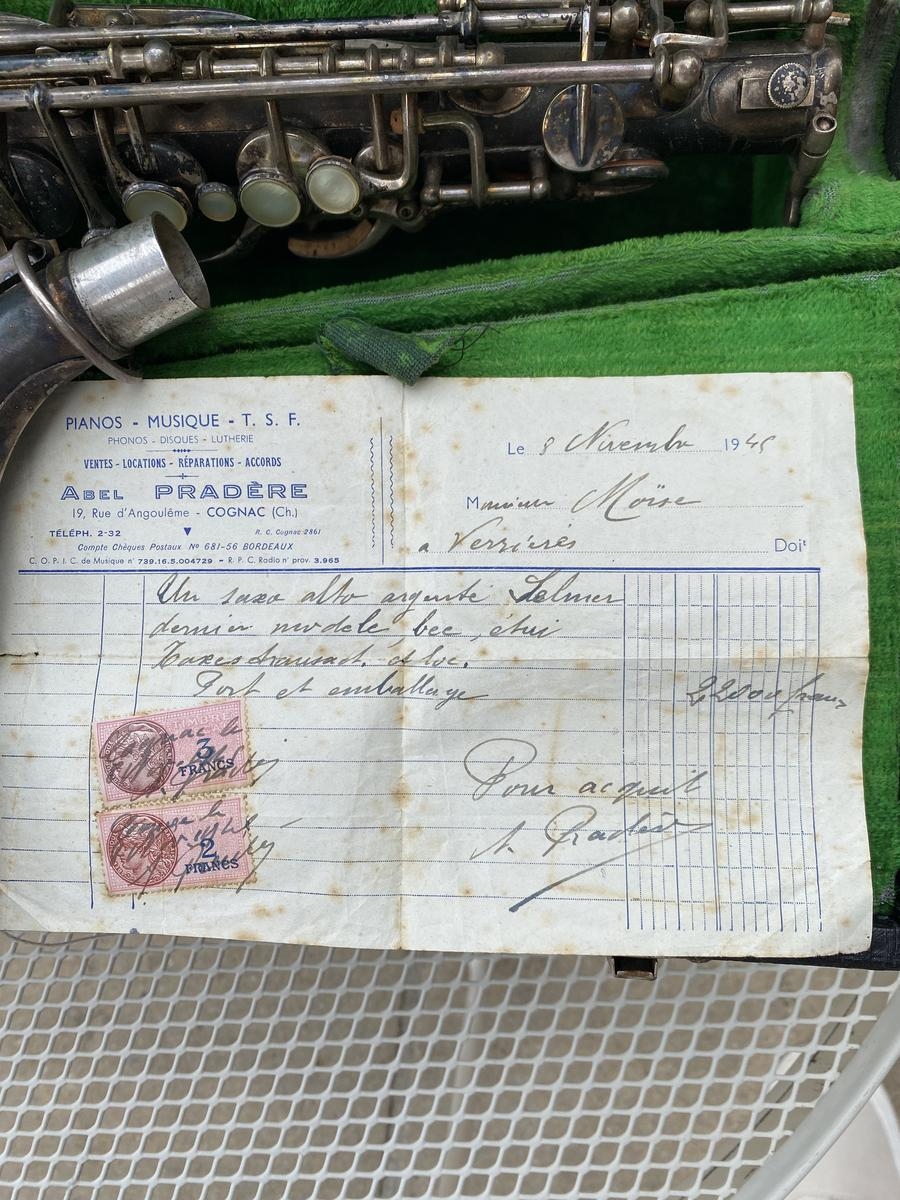 PIANOS - MUSIQUE - T. S. F.
PHONOS - DISQUES - LUTHERIE
VENTES - LOCATIONS - RÉPARATIONS - ACCORDS
ABEL PRADÈRE
19, Rue d'Angoulême - COGNAC (Ch.)
TÉLÉPH. 2-32 R. C. Cognac 2861
Compte Chèques Postaux N° 681-56 BORDEAUX
C. O. P. I. C. de Musique n° 739.16.5.004729 - R. P. C. Radio n° prov. 3.965
Le 8 Novembre 1945
Monsieur Moïse
a Verrières Doit
Un saxo alto argenté Selmer
dernier modele, bec, étui
Taxes transact. & loc.
Port et emballage 22000 francs
TIMBRE
3
FRANCS
2
FRANCS
Cognac le
Pour acquit
A. Pradère